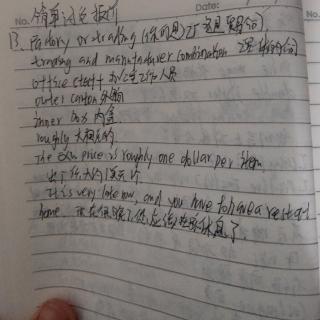 No. 清单试卷报价 Date:
13. Factory or trading (你们是)工厂还是贸易公司
trading and manufacturer combination 工贸一体公司
office staff 办公室工作人员
outer carton 外箱
inner box 内盒
roughly 大概是的
The exw price is roughly one dollar per item
It is very late now, and you have to have a rest at
home 现在很晚了,你应该在家休息了.